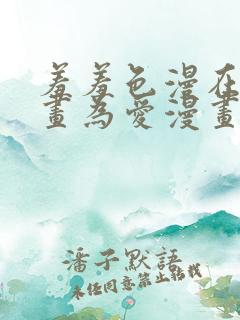 羞羞色漫在
畫為愛漫畫
潘子默語
未經同意禁止轉載